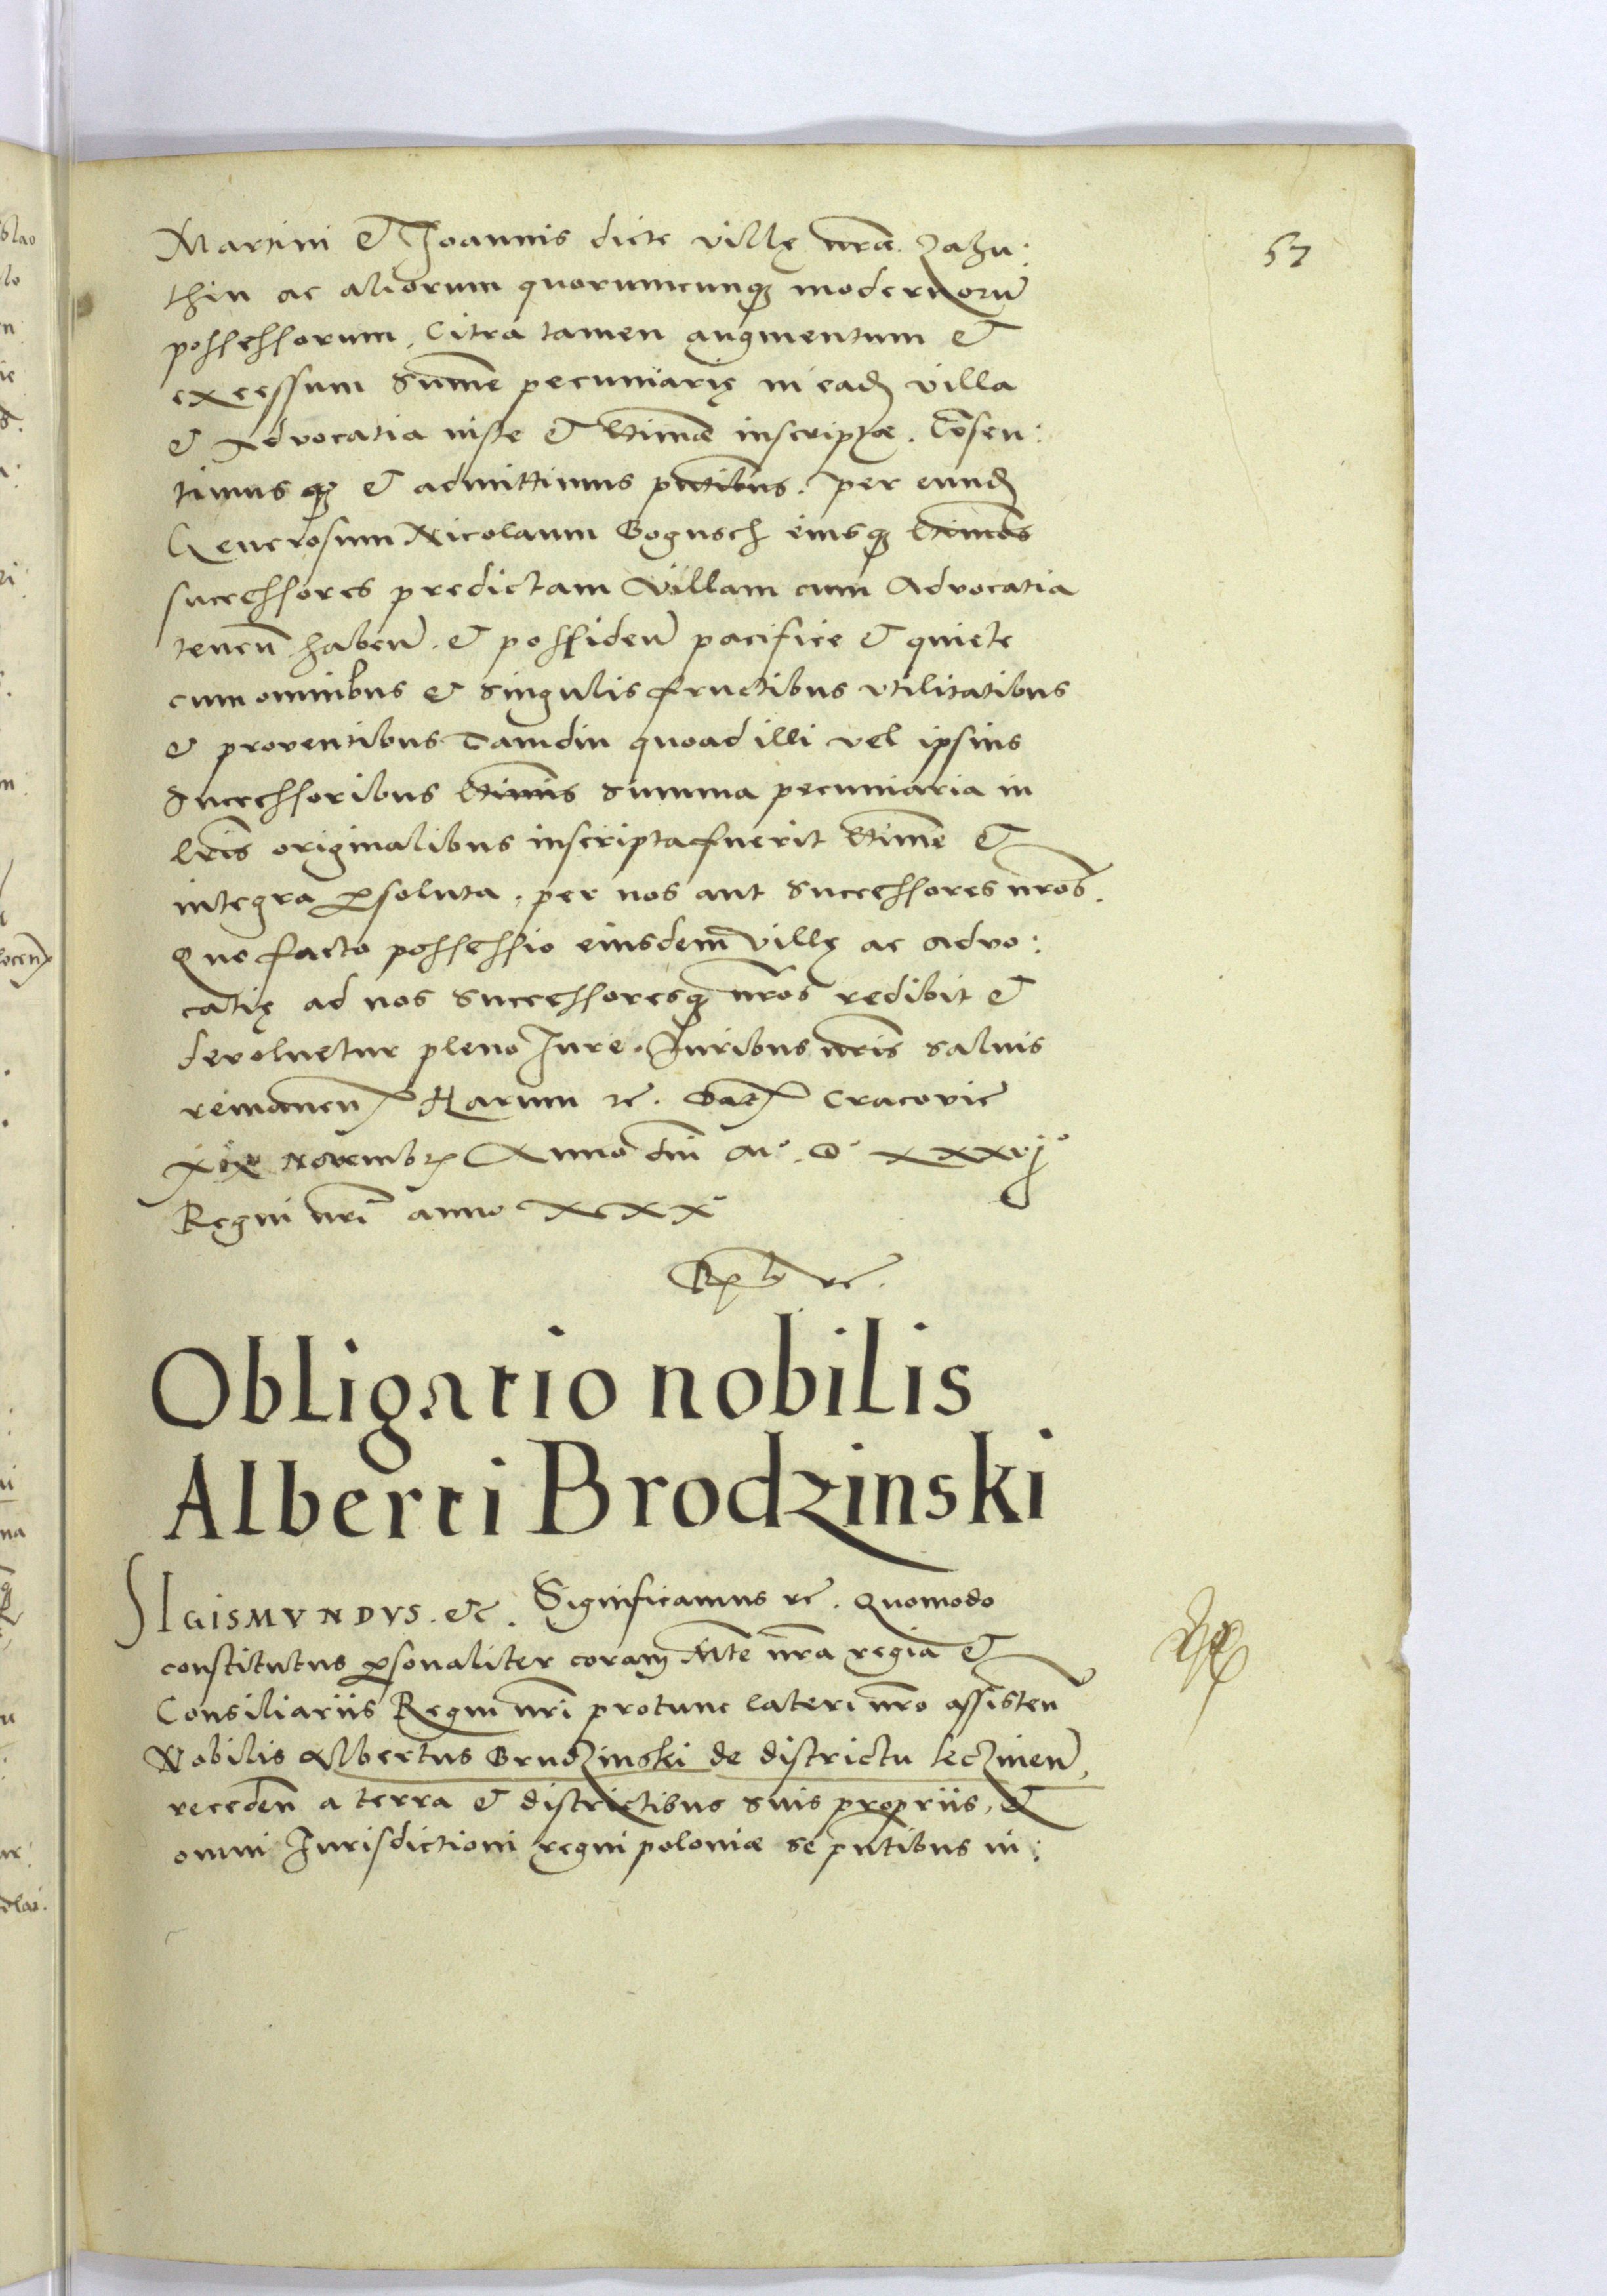 57
Martini & Joannis dicte villę nrae Zahu:
thin ac aliorum quorumcunq; modernorū
possessorum, Citra tamen augmentum &
excessum Summe pecuniarię in eadẽ villa
& Advocatia iuste & ltimae inscriptae. Cōsen:
timus q; & admittimus pntibus. per eundẽ
Generosum Nicolaum Bogusch eiusq; ltimos
successores predictam Villam cum Advocatia
tenen̄ haben̄. & possiden̄ pacifice & quiete
cum omnibus & singulis fructibus vtilitatibus
& proventibus Tamdiu quoad illi vel ipsius
Successoribus ltimis summa pecuniaria in
lris originalibus inscripta fuerit ltime &
integra psoluta, per nos aut Successores nros.
Quo facto possessio eiusdem villę ac advo:
catię ad nos Successoresq; nros redibit &
devoluetur pleno Jure. Juribus nris salvis
remanen. Harum etc. Dat. Cracovie
Novembr. Anno dni M° D° xxxvj°
Regni nri anno xxx°
etc.
Obligatio nobilis
Alberti Brodzinski
SIGISMVNDVS. etc. Significamus etc. Quomodo
constitutus psonaliter coram Mte nra regia &
Consiliariis Regni nri protunc lateri nro assisten̄
Nobilis Albertus Brudzinski de districtu lecZinen̄,
receden̄ a terra & districtibus suis propriis, &
omni Jurisdictioni regni poloniae se pntibus in: